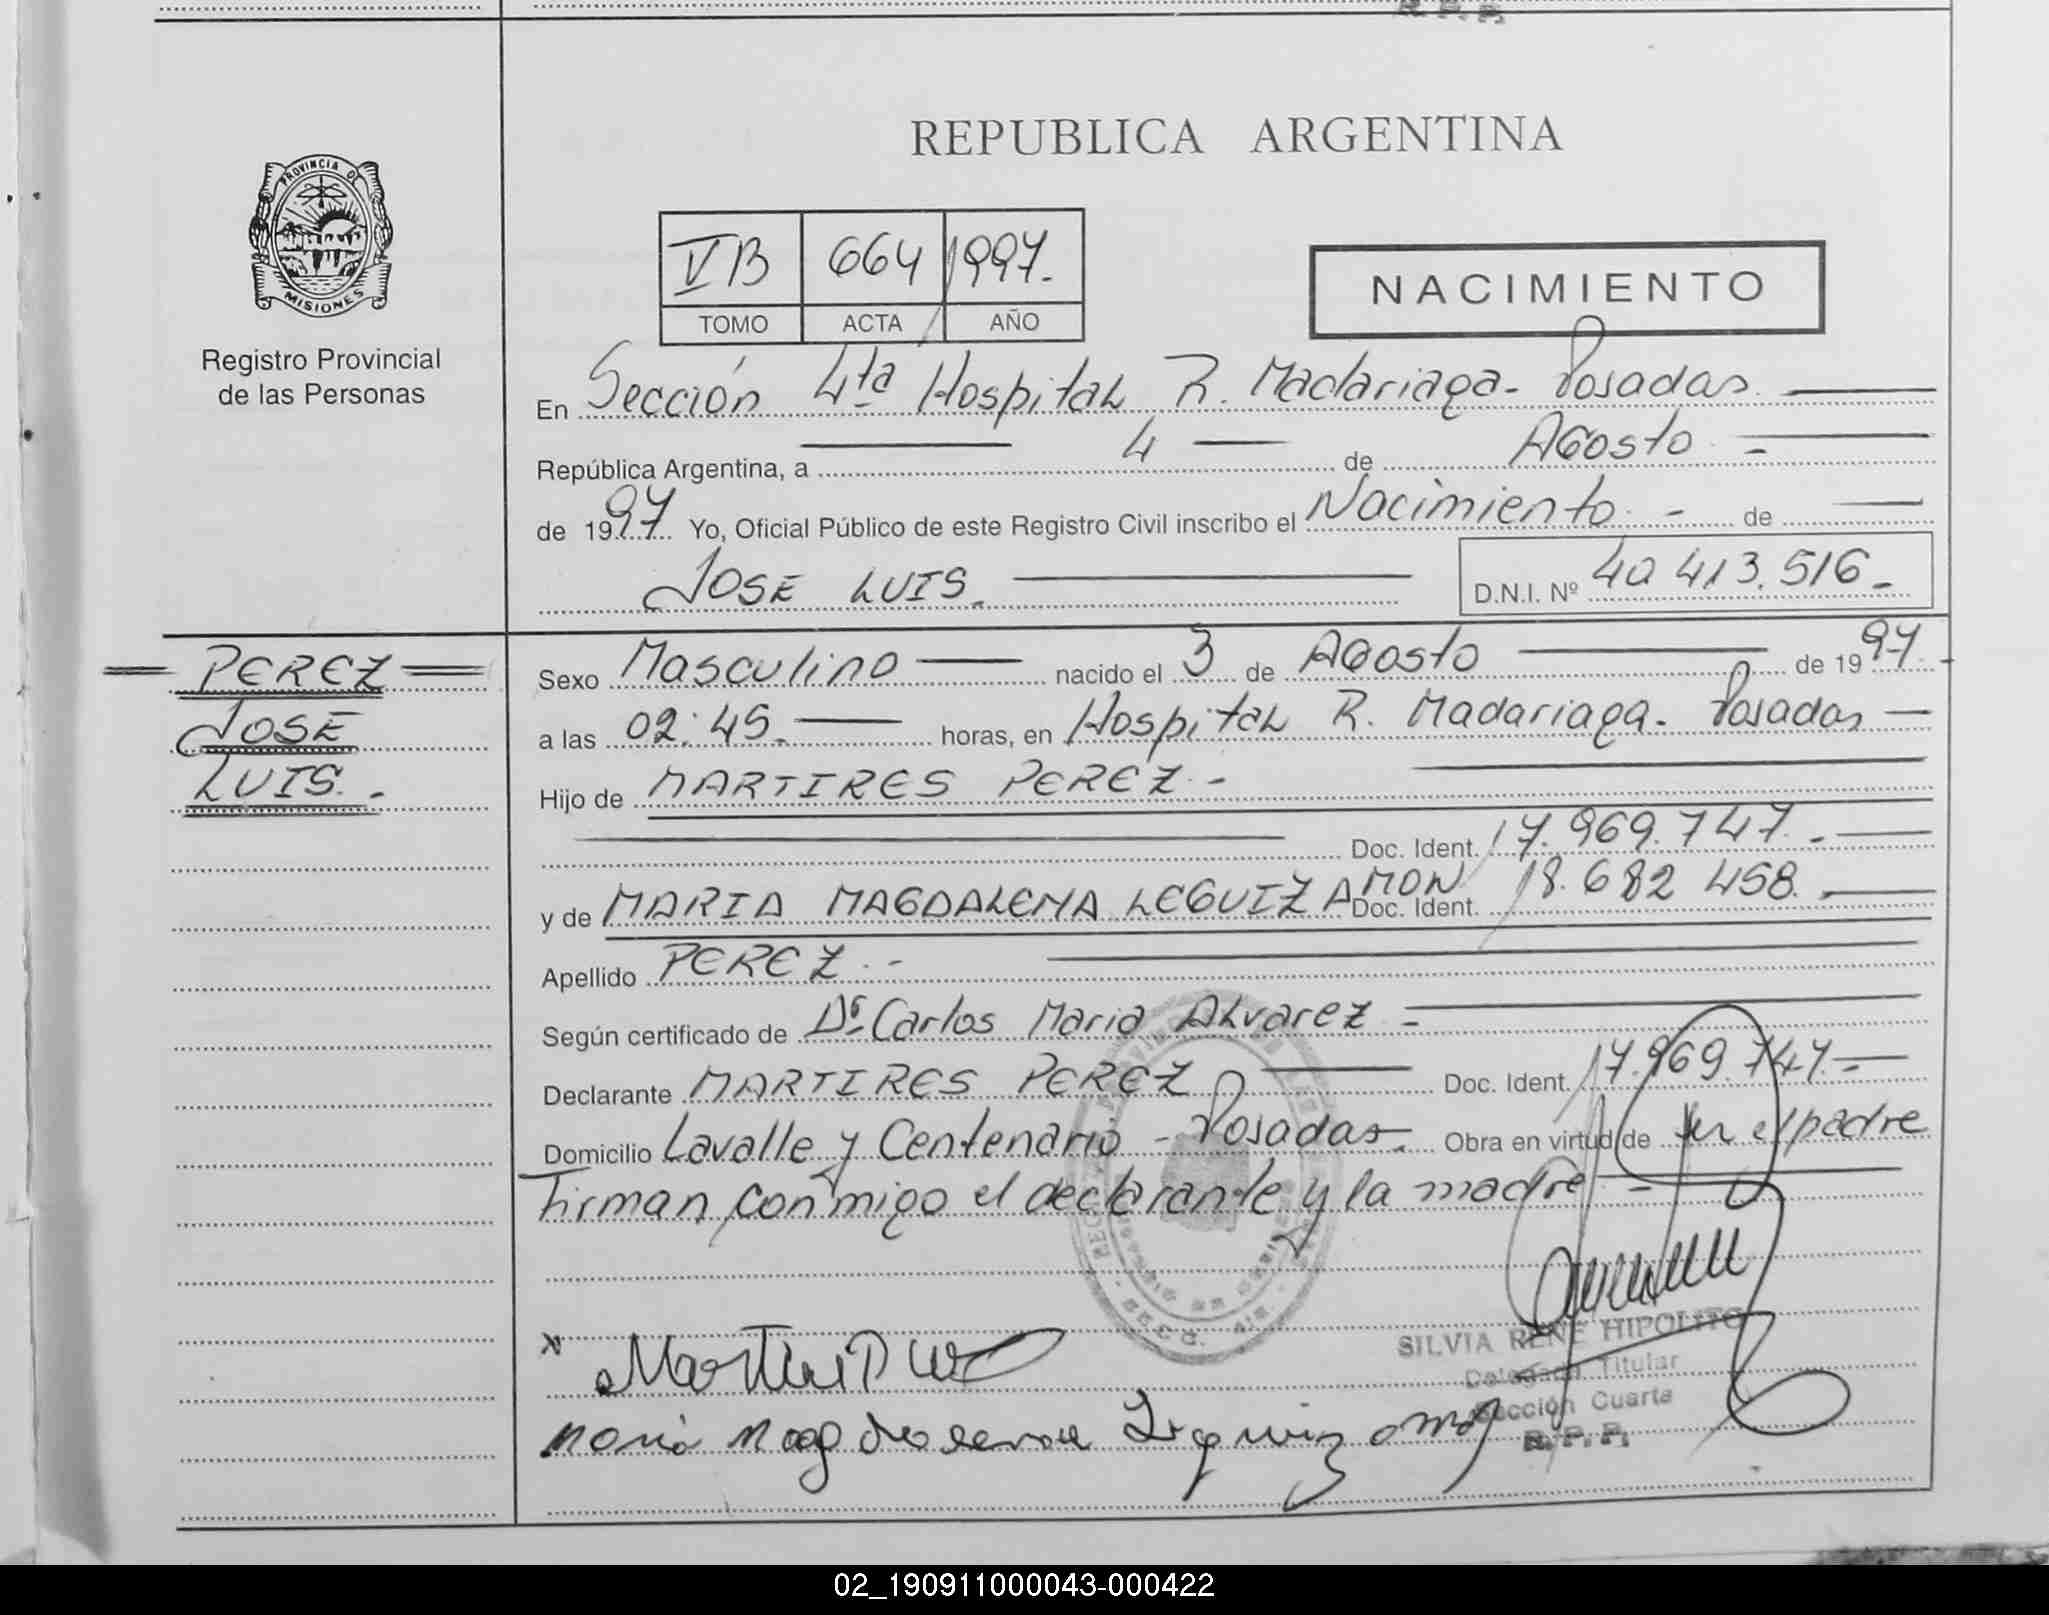 REPUBLICA ARGENTINA
PROVINCIA DE
MISIONES
Registro Provincial
de las Personas
VB 664 1997.
TOMO ACTA AÑO
NACIMIENTO
En Sección 4ta Hospital R. Madariaga - Posadas
República Argentina, a 4 de Agosto -
de 1997 Yo, Oficial Público de este Registro Civil inscribo el Nacimiento - de
JOSE LUIS. D.N.I. Nº 40 413.516-
PEREZ
JOSE
LUIS.-
Sexo Masculino nacido el 3 de Agosto de 1997
a las 02:45. horas, en Hospital R. Madariaga - Posadas
Hijo de MARTIRES PEREZ.-
Doc. Ident. 17.969.747.-
y de MARIA MAGDALENA LEGUIZAMON Doc. Ident. 18.682 458.-
Apellido PEREZ.-
Según certificado de Dr Carlos Maria Alvarez -
Declarante MARTIRES PEREZ Doc. Ident. 17.969.747.-
Domicilio Lavalle y Centenario - Posadas. Obra en virtud de ser el padre
Firman conmigo el declarante y la madre -
SILVIA RENE HIPOLITO
Delegada Titular
Sección Cuarta
R. P. P.
02_190911000043-000422